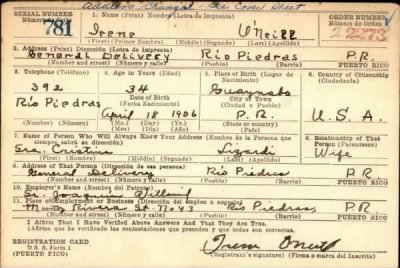 Address Changed - See Cover Sheet
SERIAL NUMBER
Número de Serie
781
1. Name (Print) (Nombre) (Letra de Imprenta)
ORDER NUMBER
Número de Orden
2273
Irene O'Neill
(First) (Primer Nombre) (Middle) (Segundo) (Last) (Apellido)
2. Address (Print) (Dirección) (Letra de Imprenta)
General Delivery Río Piedras P.R.
(Number and street) (Número y calle) (Town) (Pueblo) PUERTO RICO
3. Telephone (Teléfono)
4. Age in Years (Edad)
5. Place of Birth (Lugar de Nacimiento)
6. Country of Citizenship (Ciudadanía)
392
34
Guaynabo
Date of Birth
(Fecha Nacimiento)
City or Town
(Ciudad o Pueblo)
Río Piedras
April 18 1906
P.R.
U.S.A.
(Mo.) (Day) (Yr.)
(Mes) (Día) (Año)
State or country
7. Name of Person Who Will Always Know Your Address (Nombre de la Persona que siempre sabrá su dirección)
8. Relationship of That Person (Parentesco)
Sra. Cristina Lizardi
Wife
(First) (Middle) (Segundo) (Last) (Apellido)
9. Address of That Person (Dirección de esa persona)
General Delivery Río Piedras P.R.
(Number and street) (Número y calle) (Town) (Pueblo) PUERTO RICO
10. Employer's Name (Nombre del Patrono)
Sr. Joaquín
11. Place of Employment or Business (Dirección del empleo o negocio)
Muñoz Rivera St. No 43 Río Piedras, P.R.
(Number and street) (Número y calle) (Town) (Pueblo) PUERTO RICO
I Affirm That I Have Verified Above Answers And That They Are True.
(Afirmo que he verificado las contestaciones que preceden y que todas son correctas.
REGISTRATION CARD
D S S. Form 1
(PUERTO RICO)
Irene O'Neill
(Registrant's signature) (Firma o marca del Inscrito)